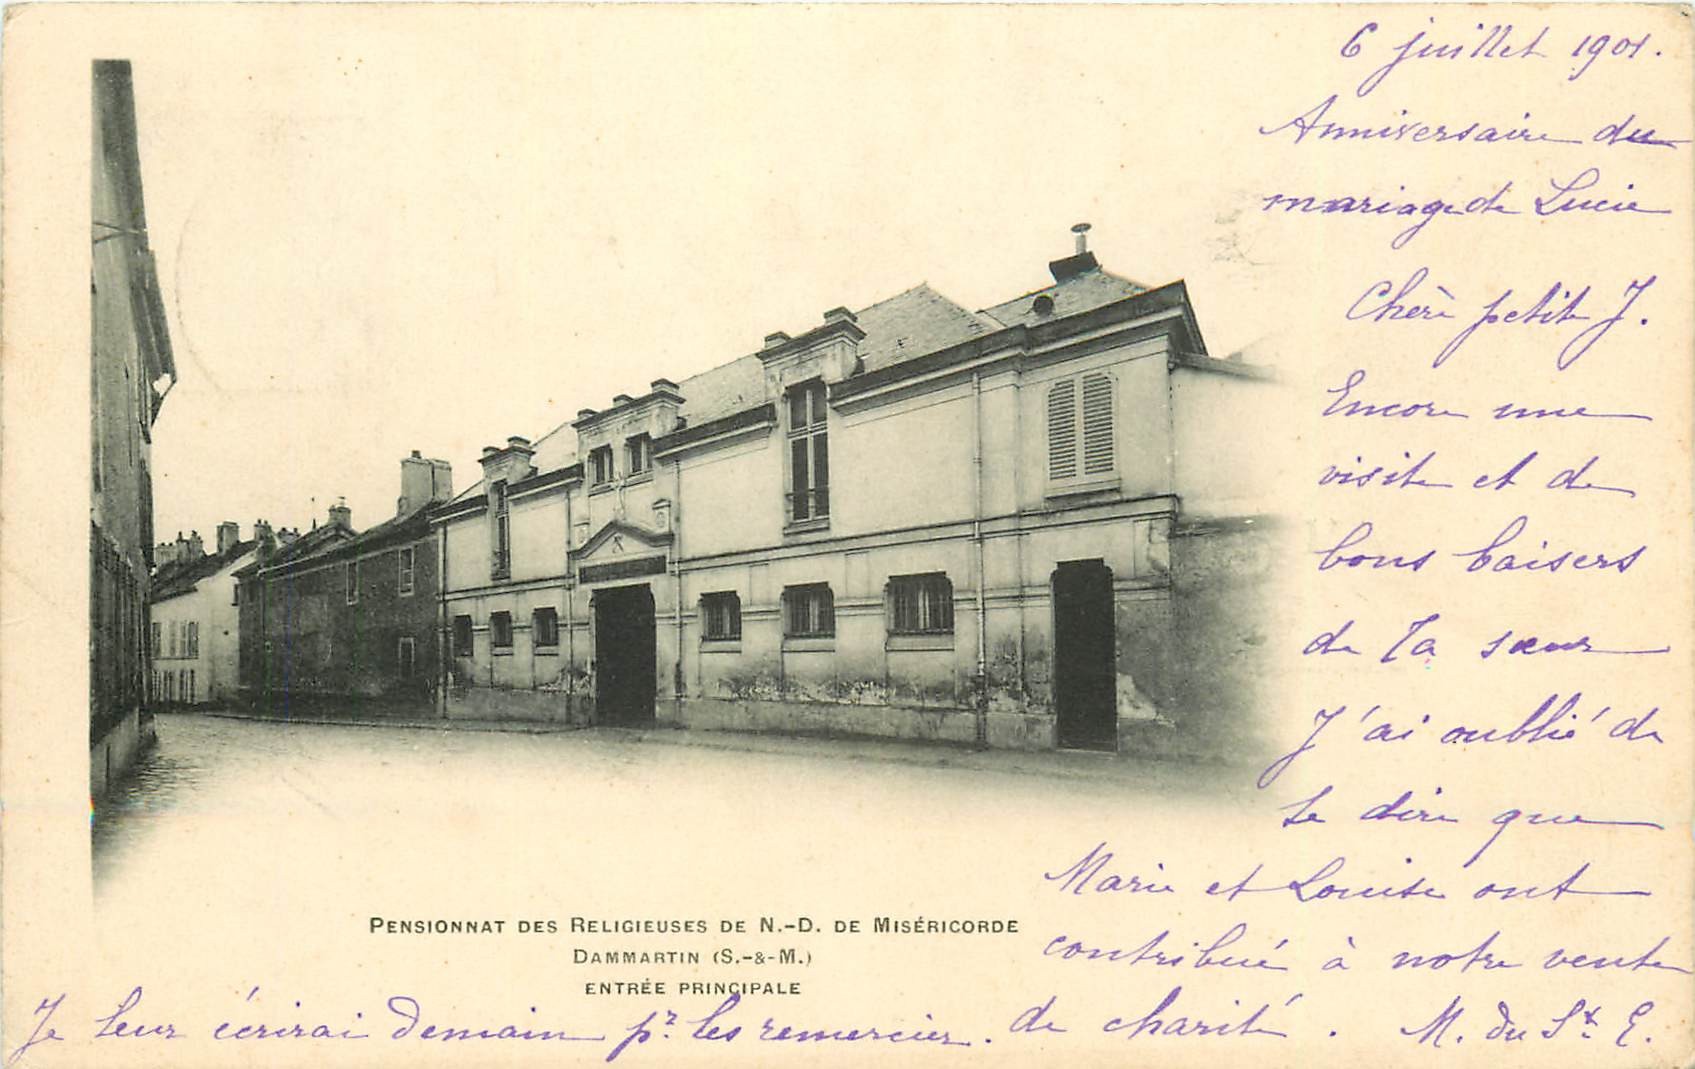 6 juillet 1901.
Anniversaire du
mariage de Lucie
Chère petite J.
Encore une
visite et de
bons baisers
de Ta sœur
J'ai oublié de
te dire que
Marie et Louise ont
contribué à notre vente
de charité. M. du St. E.
Je leur écrirai demain pr. les remercier.
PENSIONNAT DES RELIGIEUSES DE N.-D. DE MISÉRICORDE
DAMMARTIN (S.-&-M.)
ENTRÉE PRINCIPALE